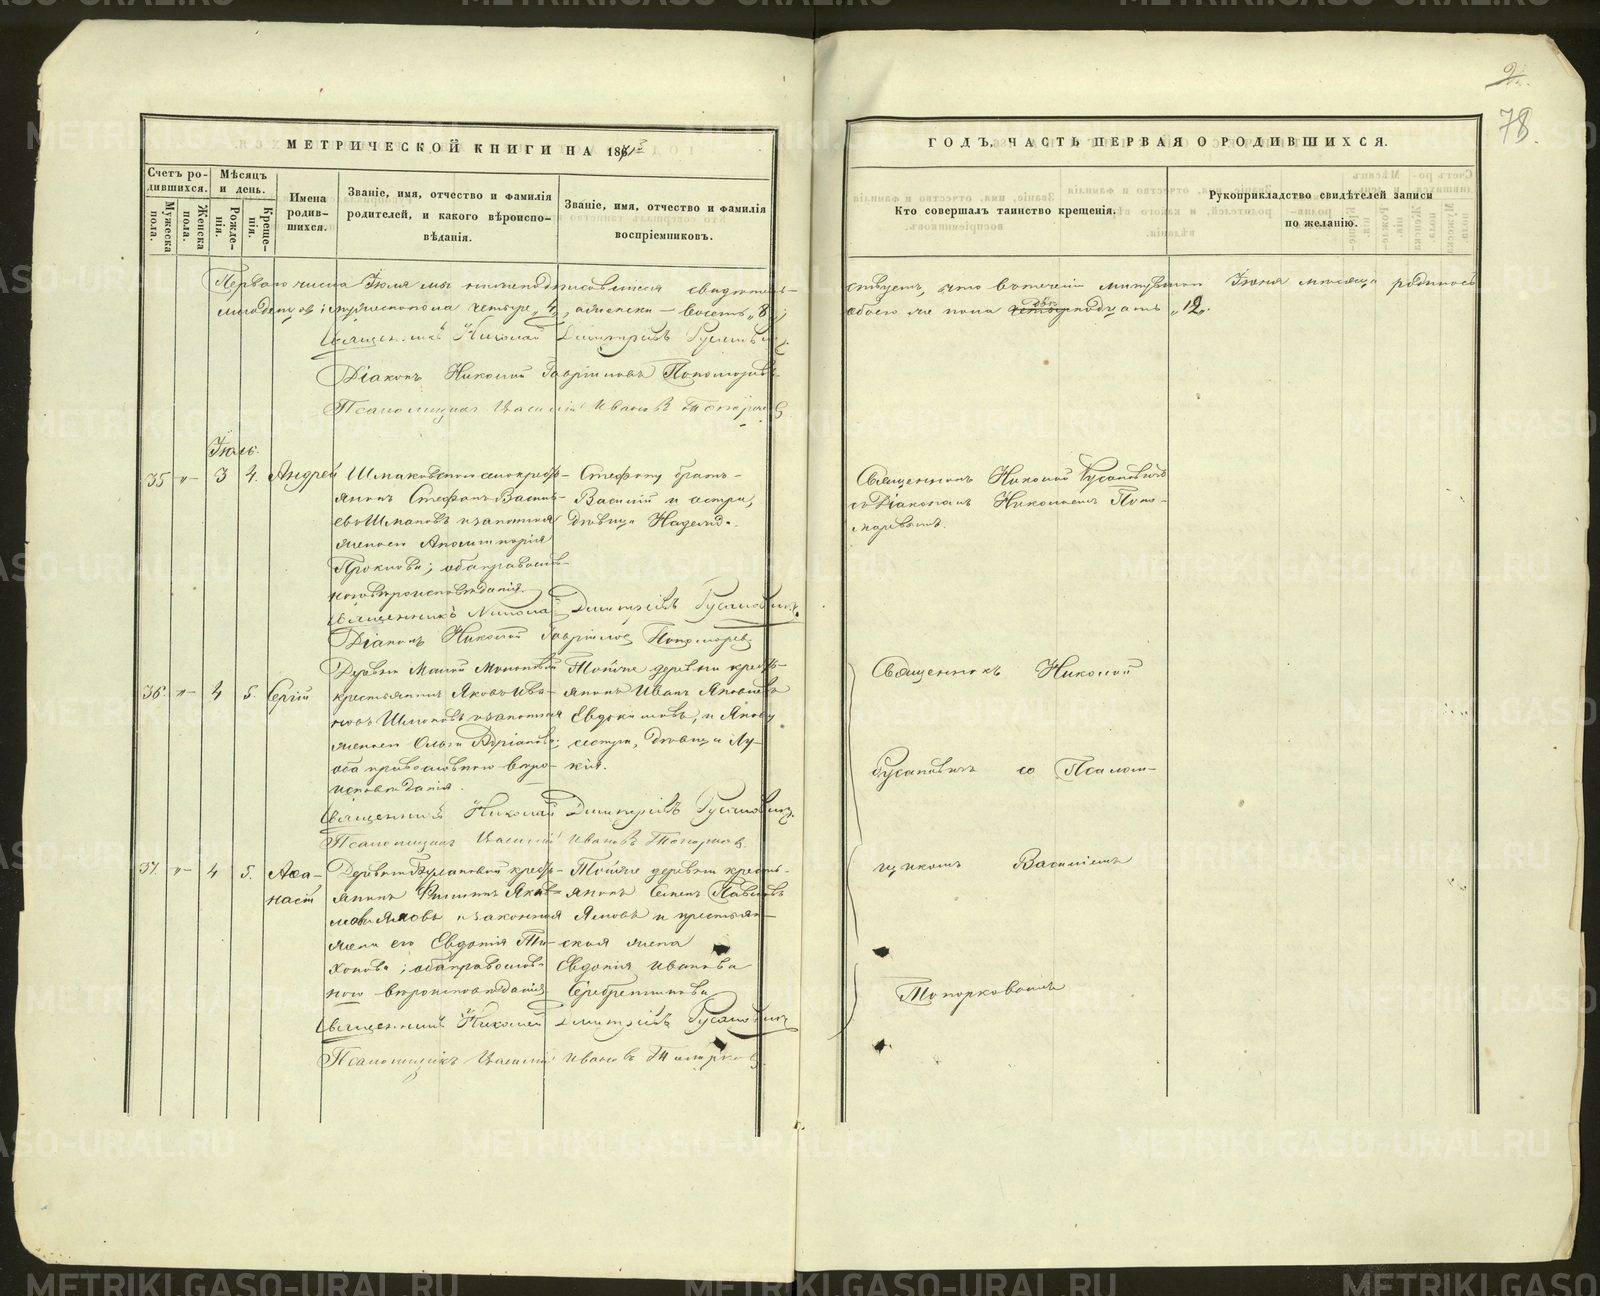 2
78
МЕТРИЧЕСКОЙ КНИГИ НА 1871й
ГОДЪ, ЧАСТЬ ПЕРВАЯ О РОДИВШИХСЯ.
Счетъ ро-
дившихся.
Мужеска
пола.
Женска
пола.
Мѣсяцъ
и день.
Рожде-
нія.
Креще-
нія.
Имена
родив-
шихся.
Званіе, имя, отчество и фамилія
родителей, и какого вѣроиспо-
вѣданія.
Званіе, имя, отчество и фамилія
воспріемниковъ.
Кто совершалъ таинство крещенія.
Рукоприкладство свидѣтелей записи
по желанію.
Перваго числа Іюля мы нижеподписавшіеся свидѣтель-
ствуемъ, что въ теченіи минувшаго Іюня мѣсяца родилось
младенцовъ: мужеска пола четыре „4„, а женска – восемь „8„;
обоего же пола двѣнадцать „12„.
Священникъ Николай Димитріевъ Русановичъ
Діаконъ Николай Гавріиловъ Пономаревъ
Псаломщикъ Василій Ивановъ Топорковъ
Іюль.
35 „– 3 4. Андрей
Шмаковской слободы кресть-
янинъ Стефанъ Василь-
евъ Шмаковъ и законная
жена его
Прокопова; оба православ-
наго вѣроисповѣданія.
Стефану братъ
Василій и сестра,
дѣвица Надежда.
Священникъ Николай Русановичъ
съ Діакономъ Николаемъ Поно-
маревымъ.
Священникъ Николай Димитріевъ Русановичъ
Діаконъ Николай Гавріиловъ Пономаревъ
36. „– 4 5. Сергій
Деревни Малой
крестьянинъ Яковъ Ива-
новъ Шмаковъ и законная
жена его Ольга
оба православнаго вѣро-
исповѣданія.
Тойже деревни кресть-
янинъ Иванъ Яковлевъ
Евдокимовъ, и Якову
сестра, дѣвица Лу-
кія.
Священникъ Николай
Русановичъ со Псалом-
Священникъ Николай Димитріевъ Русановичъ
Псаломщикъ Василій Ивановъ Топорковъ
37. „– 4 5. Аѳа-
насій
Деревни Булановой кресть-
янинъ Филиппъ Яков-
левъ Ямовъ и законная
жена его Евдокія Ти-
хонова; оба православ-
наго вѣроисповѣданія
Тойже деревни кресть-
янинъ Семенъ Павловъ
Ямовъ и крестьян-
ская жена
Евдокія Иванова
Серебренникова
щикомъ Василіемъ
Топорковымъ
Священникъ Николай Димитріевъ Русановичъ
Псаломщикъ Василій Ивановъ Топорковъ
METRIKI.GASO-URAL.RU